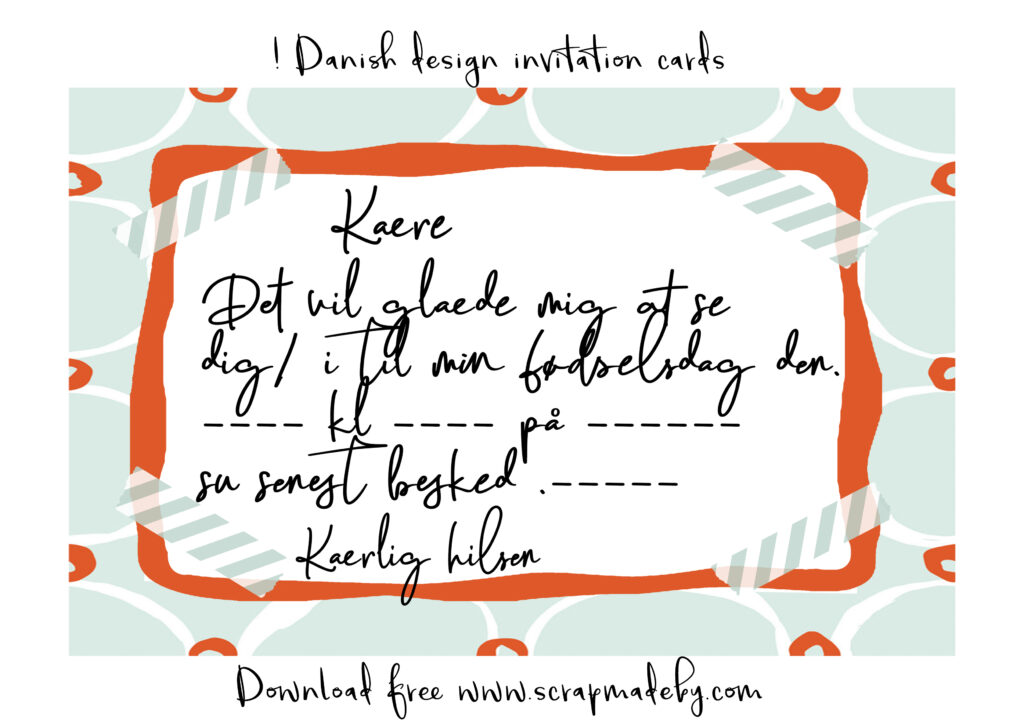 ! Danish design invitation cards
Kaere
Det vil glaede mig at se
dig/ i til min fødselsdag den.
---- kl ---- på ------
su senest besked .-----
Kaerlig hilsen
Download free www.scrapmadeby.com